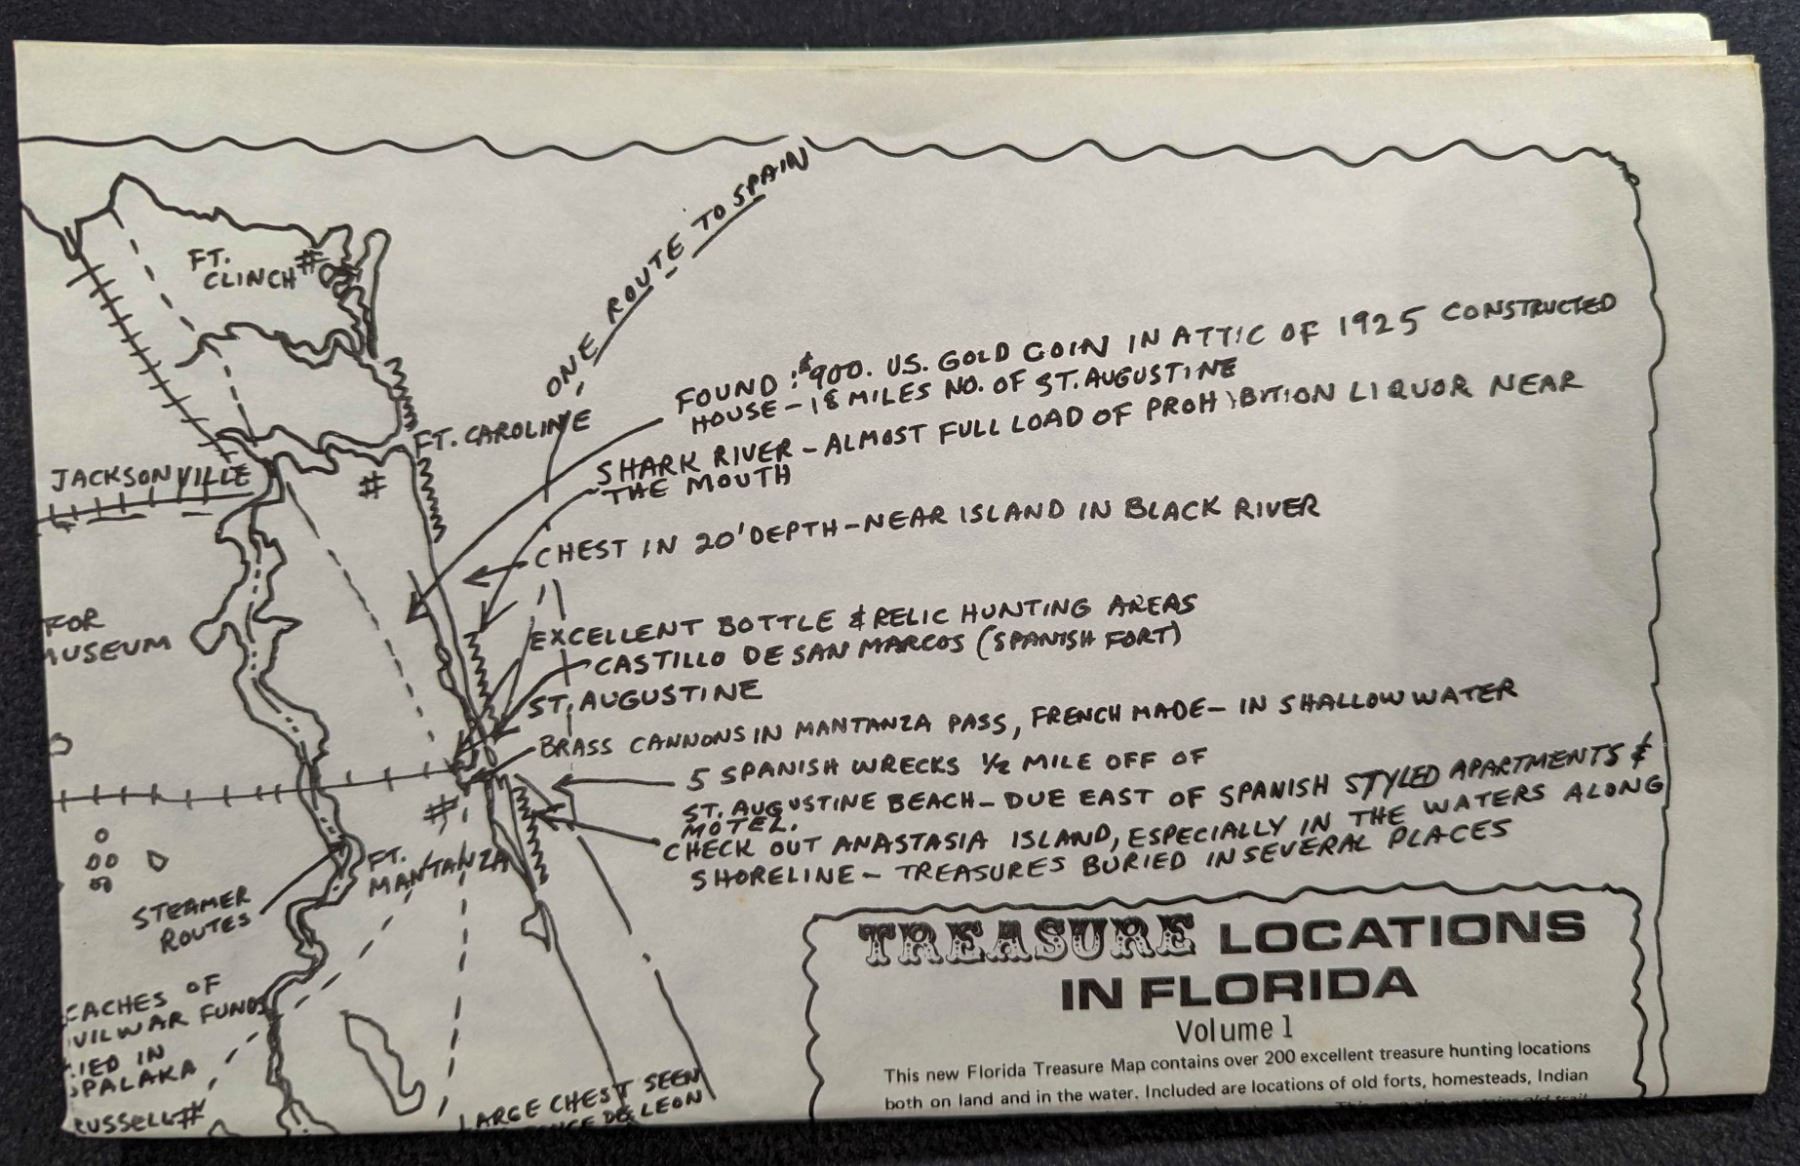 ONE ROUTE TO SPAIN
FT.
CLINCH #
FOUND: $900. U.S. GOLD COIN IN ATTIC OF 1925 CONSTRUCTED
HOUSE - 18 MILES NO. OF ST. AUGUSTINE
FT. CAROLINE
#
SHARK RIVER - ALMOST FULL LOAD OF PROHIBITION LIQUOR NEAR
THE MOUTH
JACKSONVILLE
CHEST IN 20' DEPTH - NEAR ISLAND IN BLACK RIVER
EXCELLENT BOTTLE & RELIC HUNTING AREAS
CASTILLO DE SAN MARCOS (SPANISH FORT)
FOR
MUSEUM
ST. AUGUSTINE
BRASS CANNONS IN MANTANZA PASS, FRENCH MADE - IN SHALLOW WATER
5 SPANISH WRECKS 1/2 MILE OFF OF
ST. AUGUSTINE BEACH - DUE EAST OF SPANISH STYLED APARTMENTS &
MOTEL.
CHECK OUT ANASTASIA ISLAND, ESPECIALLY IN THE WATERS ALONG
SHORELINE - TREASURES BURIED IN SEVERAL PLACES
#
FT.
MANTANZA
STEAMER
ROUTES
CACHES OF
WAR FUNDS
IED IN
PALAKA
RUSSELL #
LARGE CHEST SEEN
DE LEON
TREASURE LOCATIONS
IN FLORIDA
Volume 1
This new Florida Treasure Map contains over 200 excellent treasure hunting locations
both on land and in the water. Included are locations of old forts, homesteads, Indian